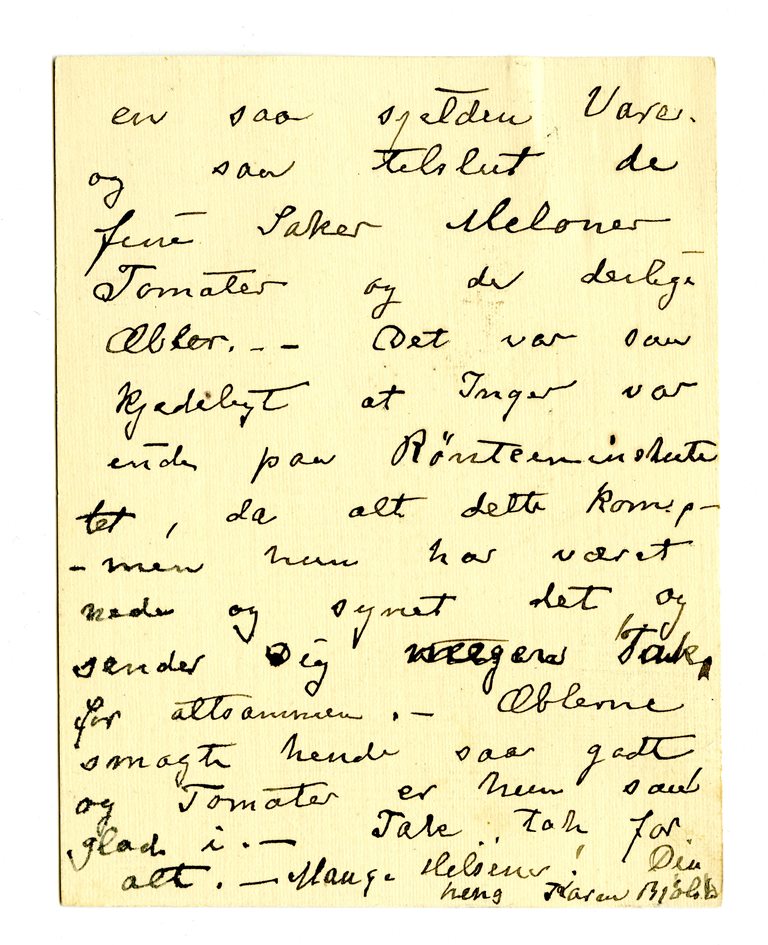 en saa sjelden Vare.
og saa tilslut de
fine Saker Meloner
Tomater og de deilige
Æbler. - - Det var saa
kjedeligt at Inger var
ende paa Röntgeninstitu
tet, da alt dette kom, -
- men hun har været
nede og synet det og
sender Dig megen Tak,
for altsammen. - Æblerne
smagte hende saa godt
og Tomater er hun saa
glad i. - Tak, tak for
alt. - Mange Hilsener! Din
heng Karen